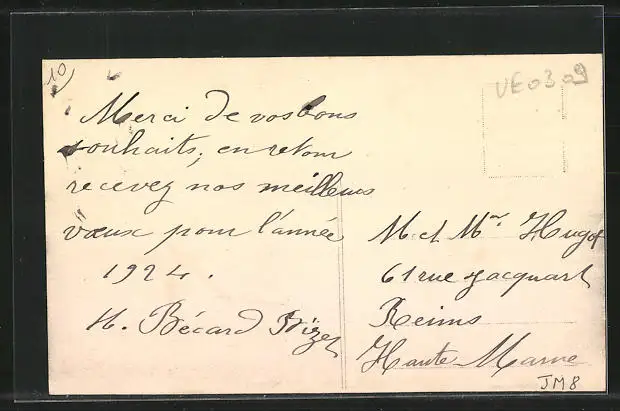 10
VE0309
Merci de vos bons
souhaits, en retour
recevez nos meilleurs
vœux pour l'année
1924.
H. Bécard Bizet
M et Mme Hugot
61 rue Jacquart
Reims
Haute Marne
JM8